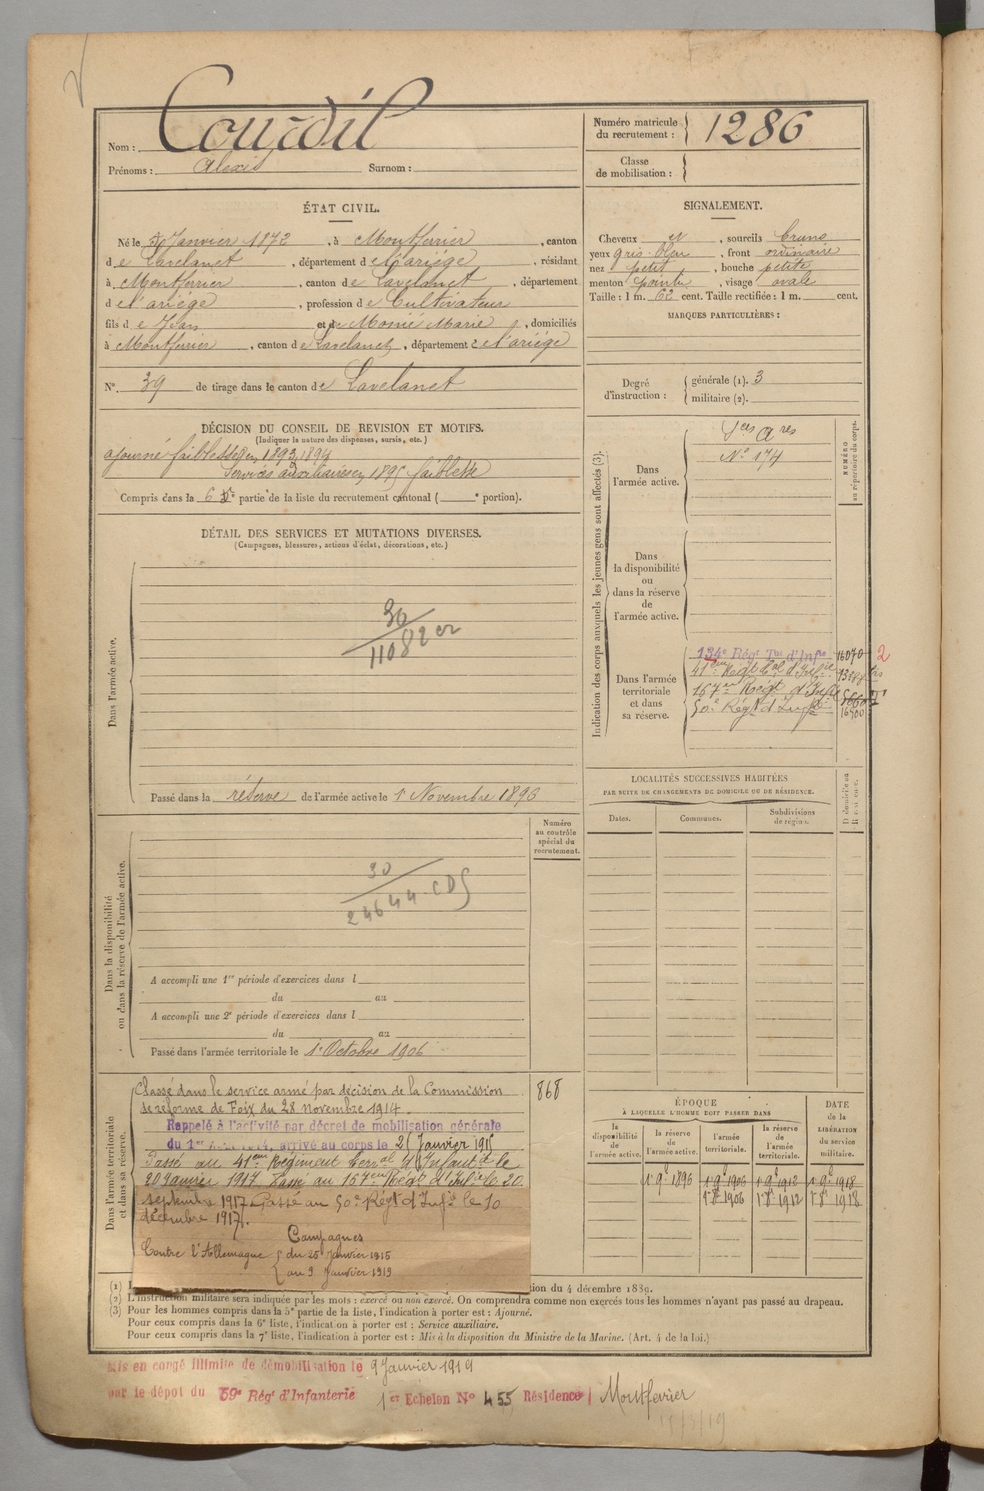 Nom : Courdil
Prénoms : Alexis Surnom :
Numéro matricule du recrutement : 1286
Classe de mobilisation :
ÉTAT CIVIL.
Né le 30 Janvier 1872, à Montferrier, canton
de Lavelanet, département de l'ariége, résidant
à Montferrier, canton de Lavelanet, département
de l'ariége, profession de Cultivateur
fils de Jean et de Monié Marie, domiciliés
à Montferrier, canton de Lavelanet, département de l'ariége
N° 39 de tirage dans le canton de Lavelanet
SIGNALEMENT.
Cheveux et, sourcils bruns
yeux gris bleu, front ordinaire
nez petit, bouche petite
menton pointu, visage ovale
Taille : 1 m. 62 cent. Taille rectifiée : 1 m. cent.
MARQUES PARTICULIÈRES :
Degré d'instruction : générale (1). 3
militaire (2).
DÉCISION DU CONSEIL DE REVISION ET MOTIFS.
(Indiquer la nature des dispenses, sursis, etc.)
ajourné faiblesse en 1893, 1894
Services auxiliaires en 1895 faiblesse
Compris dans la 6e partie de la liste du recrutement cantonal ( e portion).
DÉTAIL DES SERVICES ET MUTATIONS DIVERSES.
(Campagnes, blessures, actions d'éclat, décorations, etc.)
Dans l'armée active.
30
11082 cr
Passé dans la réserve de l'armée active le 1r Novembre 1896
Indication des corps auxquels les jeunes gens sont affectés (3).
NUMÉRO au répertoire du corps.
Dans l'armée active.
Sces Ares
N° 174
Dans la disponibilité ou dans la réserve de l'armée active.
Dans l'armée territoriale et dans sa réserve.
134e Régt Tal d'Infie 16070 2
41eme Régt Tal d'Infie
167eme Régt d'Infie
50e Régt d'Infie 16700
LOCALITÉS SUCCESSIVES HABITÉES
PAR SUITE DE CHANGEMENTS DE DOMICILE OU DE RÉSIDENCE.
Dates. Communes. Subdivisions de région.
Dans la disponibilité ou dans la réserve de l'armée active.
Numéro au contrôle spécial du recrutement.
30
24644 CDS
A accompli une 1re période d'exercices dans l
du au
A accompli une 2e période d'exercices dans l
du au
Passé dans l'armée territoriale le 1r Octobre 1906
Dans l'armée territoriale et dans sa réserve.
868
Classé dans le service armé par décision de la Commission
de réforme de Foix du 28 novembre 1914.
Rappelé à l'activité par décret de mobilisation générale
du 1er Août 1914, arrivé au corps le 25 Janvier 1915
Passé au 41eme Régiment Terral d'Infantie le
20 Janvier 1917. Passé au 167eme Régt d'Infie le 20
septembre 1917. Passé au 50e Régt d'Infie le 10
décembre 1917.
Campagnes
Contre l'Allemagne du 25 Janvier 1915
au 9 Janvier 1919
ÉPOQUE
À LAQUELLE L'HOMME DOIT PASSER DANS
la disponibilité de l'armée active. la réserve de l'armée active. l'armée territoriale. la réserve de l'armée territoriale.
DATE de la LIBÉRATION du service militaire.
1r 9e 1896 1r 9e 1906 1r 9e 1912 1r 9e 1918
1r 8e 1906 1r 8e 1912 1r 8e 1918
(1) ion du 4 décembre 1889.
(2) L'instruction militaire sera indiquée par les mots : exercé ou non exercé. On comprendra comme non exercés tous les hommes n'ayant pas passé au drapeau.
(3) Pour les hommes compris dans la 5e partie de la liste, l'indication à porter est : Ajourné.
Pour ceux compris dans la 6e liste, l'indication à porter est : Service auxiliaire.
Pour ceux compris dans la 7e liste, l'indication à porter est : Mis à la disposition du Ministre de la Marine. (Art. 4 de la loi.)
Mis en congé illimité de démobilisation le 9 Janvier 1919
par le dépôt du 59e Régt d'Infanterie 1er Echelon N° 455 Résidence Montferrier